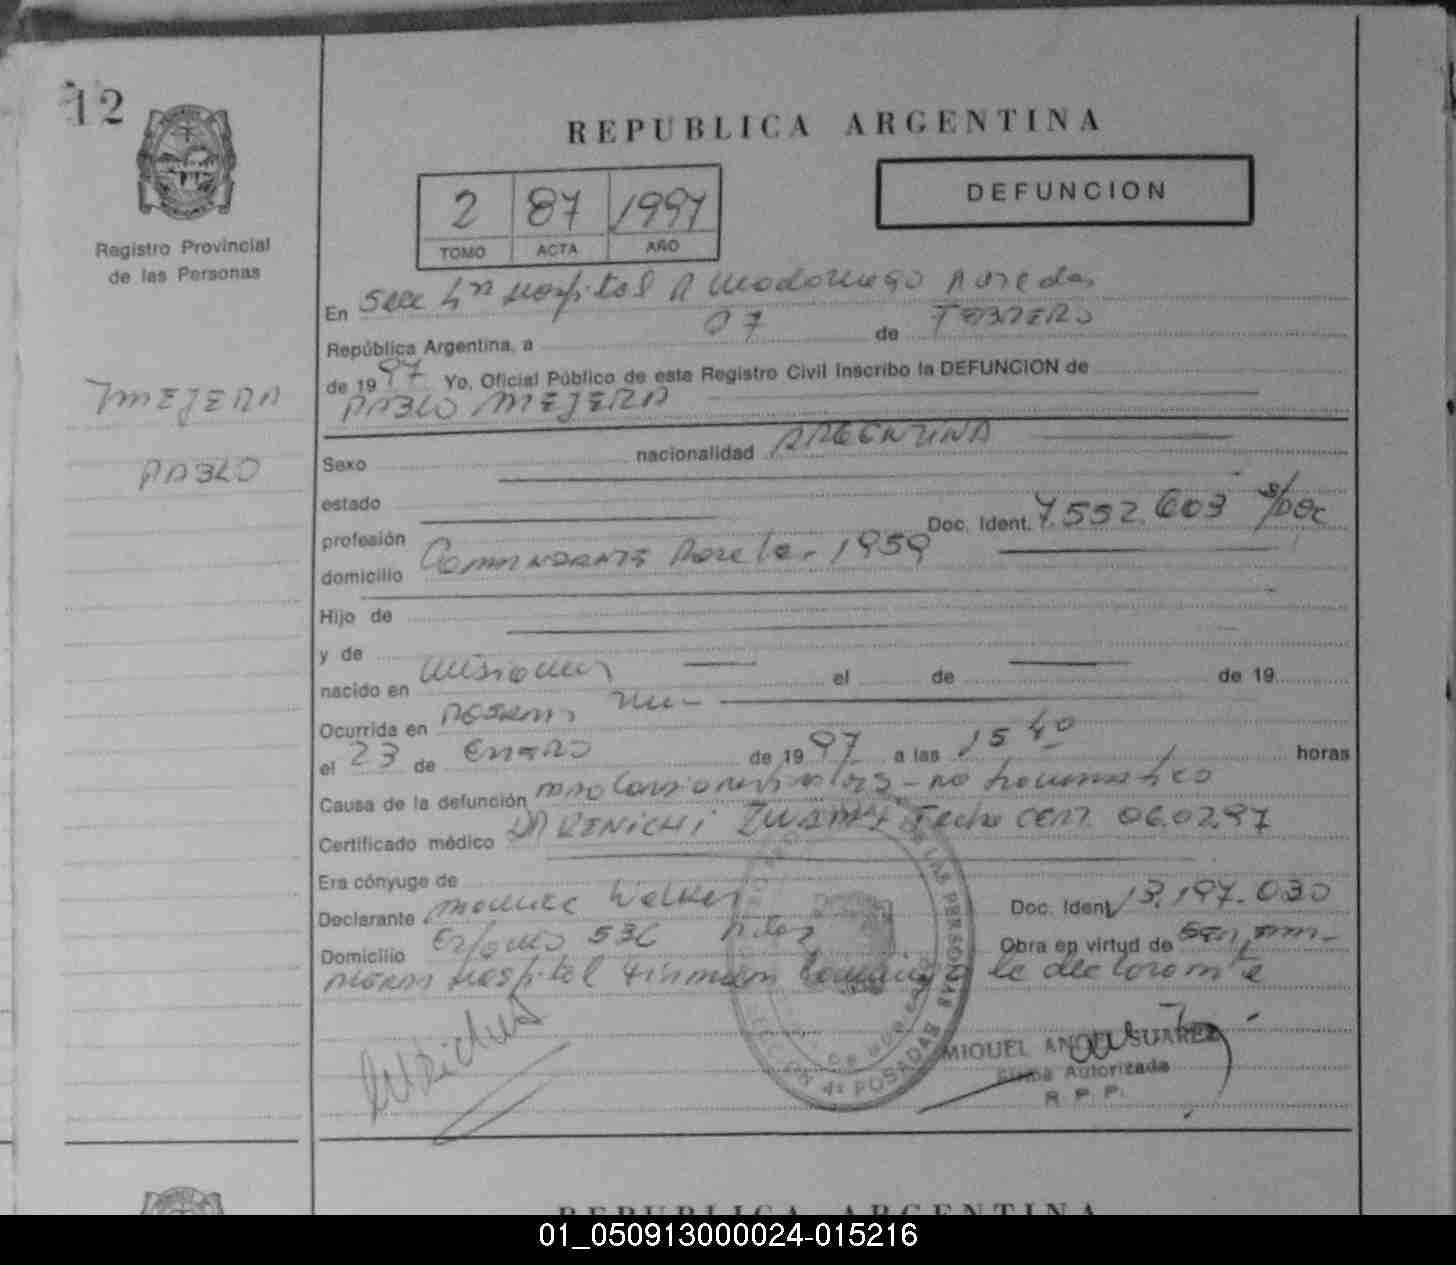 12
REPUBLICA ARGENTINA
DEFUNCION
2 87 1997
TOMO ACTA AÑO
Registro Provincial
de las Personas
En Secc 4ta Hospital R Madariaga Posadas
República Argentina, a 07 de FEBRERO
de 1997 Yo, Oficial Público de este Registro Civil Inscribo la DEFUNCION de
PABLO MEJERA
MEJERA
PABLO
Sexo nacionalidad ARGENTINA
estado
profesión Doc. Ident. 7.552.603 s/Doc
domicilio COMANDANTE 1959
Hijo de
y de
nacido en Misiones el de de 19
Ocurrida en Posadas
el 23 de ENERO de 1997 a las 15 40 horas
Causa de la defunción no traumatico
Certificado médico DR KENICHI Fecha CERT. 06.02.97
Era cónyuge de
Declarante Walker Doc. Ident 13.197.030
Domicilio 536 Obra en virtud de
Hospital firman la declarante
REGISTRO DE LAS PERSONAS
SECCION 4ª POSADAS
MIGUEL ANGEL SUAREZ
Firma Autorizada
R. P. P.
REPUBLICA ARGENTINA
01_050913000024-015216